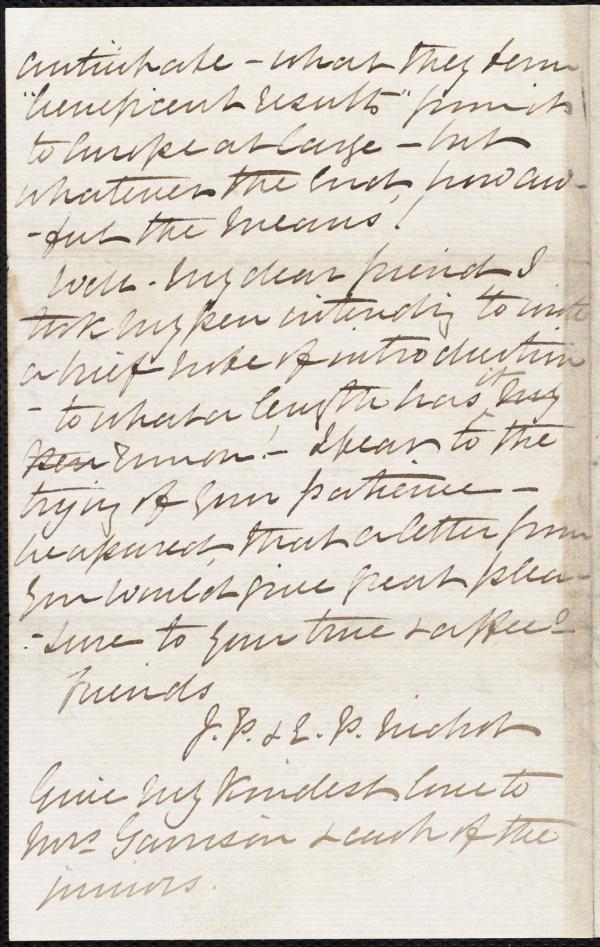 anticipate - what they term
"beneficent results" from it
to Europe at large - but
whatever the end, how aw-
-ful the means!
Well - My dear friend I
took my pen intending to write
a brief note of introduction
- to what a length has it my
pen run on! - I fear to the
trying of your patience -
be assured, that a letter from
you would give great plea-
-sure to your true & affect
friends
J. P. & E. P. Nichol
Give my kindest love to
Mrs Garrison & each of the
juniors.